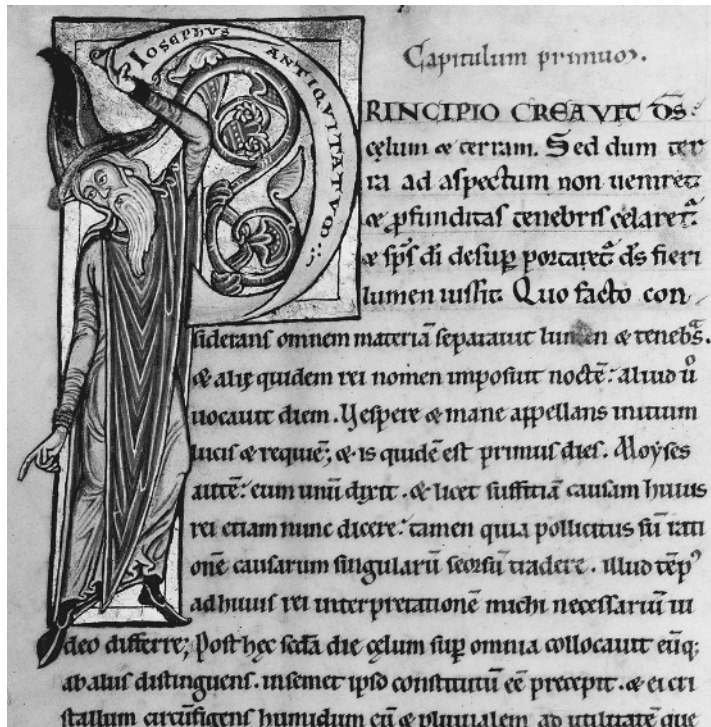 IOSEPHVS ANTIQVITATVM
Capitulum primum.
PRINCIPIO CREAVIT DS̄.
cęlum & terram. Sed dum ter
ra ad aspectum non ueniret
& ꝓfunditas tenebris celaret᷑
& sp̄s dī desup portaret᷑ d̄s fieri
lumen iussit. Quo facto con
siderans omnem materiā separauit lumen & tenebs᷑.
& alię quidem rei nomen imposuit noctē: aliud ů
uocauit diem. Vespere & mane appellans initium
lucis & requiē; & is quidē est primus dies. Moyses
autē: eum unū dixit. & licet suffitiā causam huius
rei etiam nunc dicere: tamen quia pollicitus sū rati
onē causarum singularū seorsū tradere. illud tēpꝰ
ad huius rei interpretationē michi necessariū ui
deo differre; Post hęc sc̄da die cęlum sup omnia collocauit eūq;
ab aliis distinguens. in semet ipso constitutū eē precepit. & ei cri
stallum circūfigens humidum eū & pluuialem ad utilitatē que